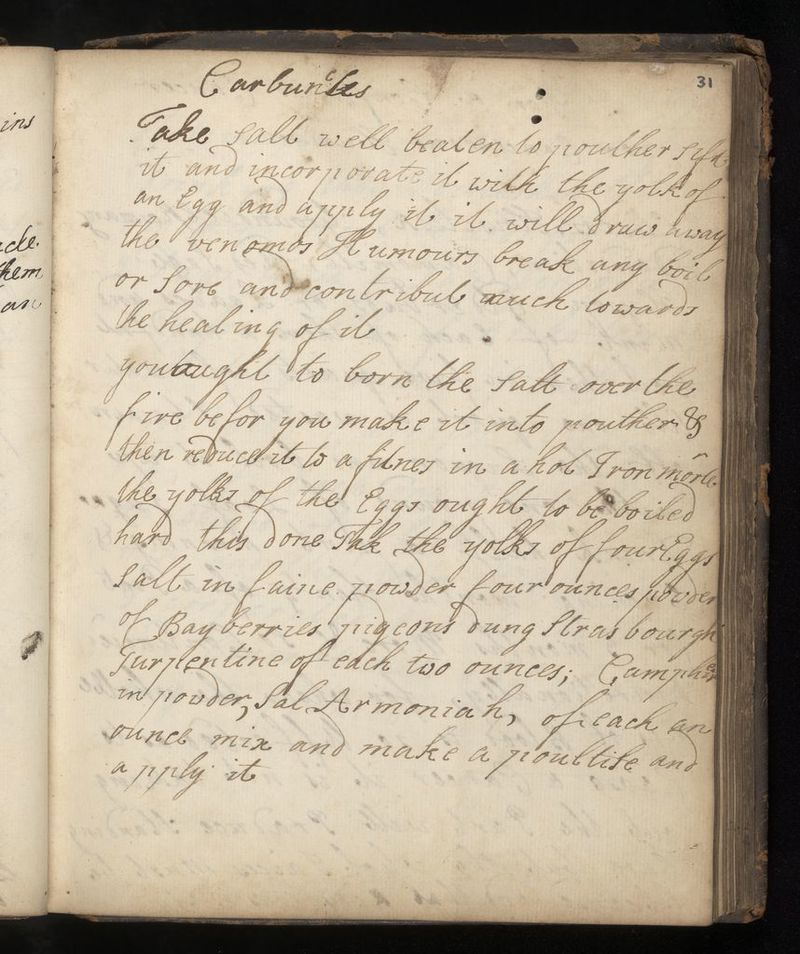 31
Carbuncles
Take Salt well beaten to pouther Sift
it and incorporate it with the yolk of
an Egg and apply it it will draw away
the venomos Humours break any boil
or Sore and contribut much towards
the healing of it
you ought to born the Salt over the
fire befor you make it into pouther &
then reduce it to a finnes in a hot Iron morte
the yolks of the Eggs ought to be boiled
hard this done Take the yolks of four Eggs
Salt in faine powder four ounces powder
of Bayberries pigeons dung Strasbourgh
Turpentine of each two ounces; Camphir
in powder, Sal Armoniah, of each an
ounce mix and make a poultise and
apply it
ins
cle
them
an